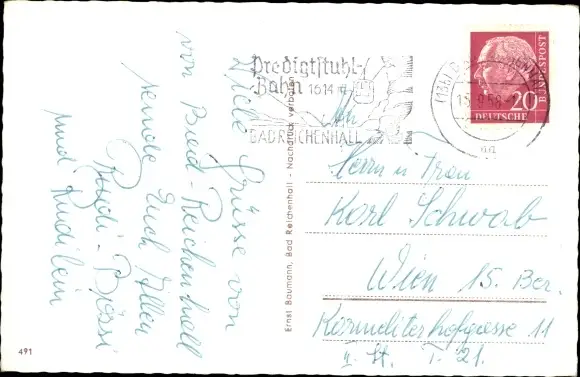 Predigtstuhl-
Bahn 1614 m
BAD REICHENHALL
20
DEUTSCHE
BUNDESPOST
Viele Grüsse von
von Bad-Reichenhall
sende Euch Allen
Rudi-Bossi
und Rudilein
Ernst Baumann, Bad Reichenhall - Nachdruck verboten
An
Herrn u Frau
Karl Schwab
Wien 15. Bez.
11
II. St. T. 21.
491